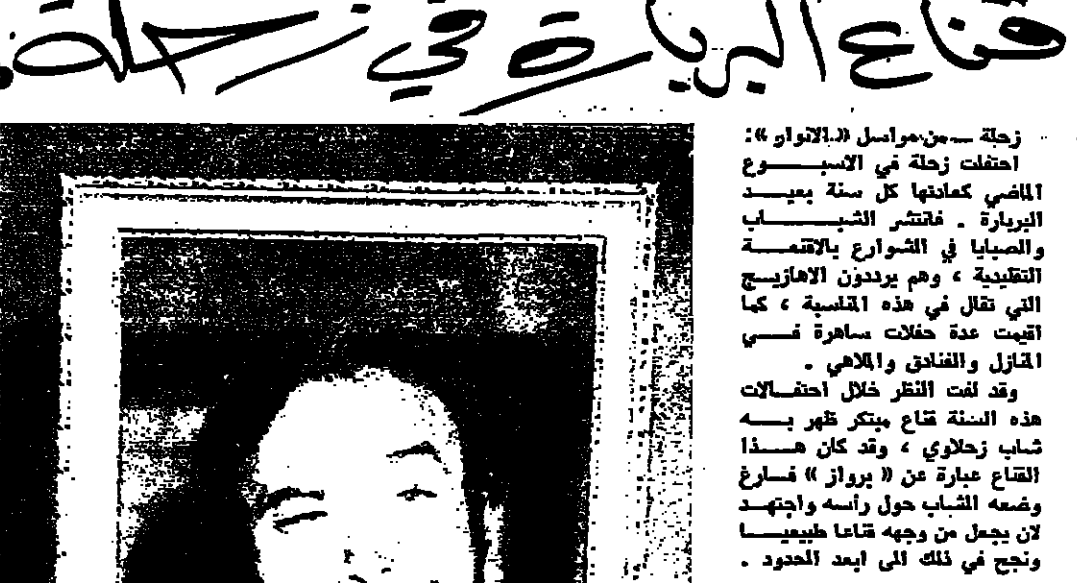 قناع البربارة في زحلة
زحلة ــ من مراسل «الانوار»:
احتفلت زحلة في الاسبـــوع
الماضي كعادتها كل سنة بعيـــد
البربارة . فانتشر الشبـــاب
والصبايا في الشوارع بالاقنعـــة
التقليدية ، وهم يرددون الاهازيـــج
التي تقال في هذه المناسبة ، كما
اقيمت عدة حفلات ساهرة فـــي
المنازل والفنادق والملاهي .
وقد لفت النظر خلال احتفـــالات
هذه السنة قناع مبتكر ظهر بـــه
شاب زحلاوي ، وقد كان هـــذا
القناع عبارة عن « برواز » فـــارغ
وضعه الشاب حول راسه واجتهـــد
لان يجعل من وجهه قناعا طبيعيـــا
ونجح في ذلك الى ابعد الحدود .